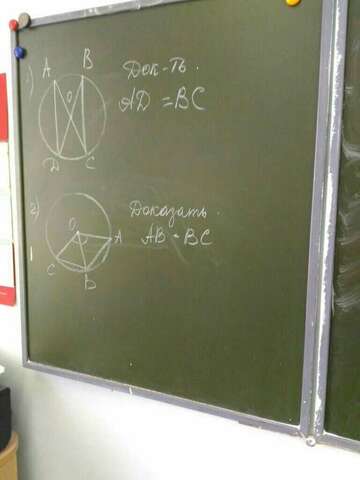 1)
A
B
O
D
C
Док-ть.
AD = BC
2)
O
A
C
B
Доказать.
AB = BC